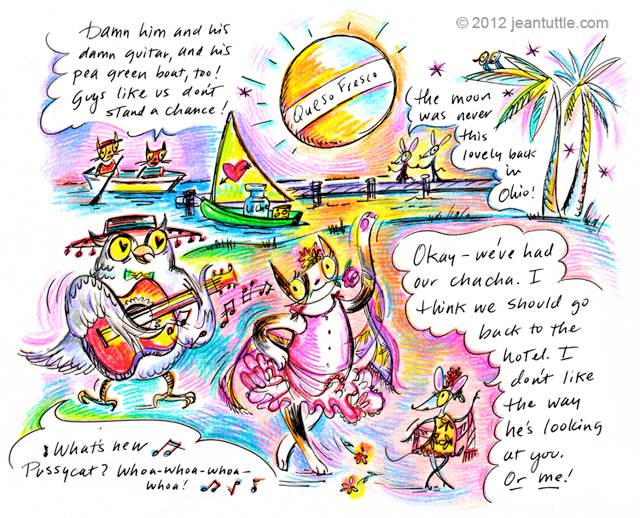 © 2012 jeantuttle.com
Damn him and his
damn guitar, and his
pea green boat, too!
Guys like us don't
stand a chance!
Queso Fresco
the moon
was never
this
lovely back
in
Ohio!
Okay – we've had
our chacha. I
think we should go
back to the
hotel. I
don't like
the way
he's looking
at you.
Or me!
What's new
Pussycat? Whoa-whoa-whoa-
whoa!